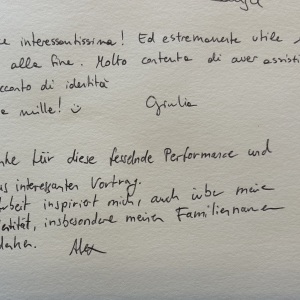 interessantissima! Ed estremamente utile
alla fine. Molto contenta di aver assisti
cconto di identità
mille! Giulia
für diese fesselnde Performance und
interessanten Vortrag.
inspiriert mich, auch über meine
insbesondere meinen Familiennamen
Alex